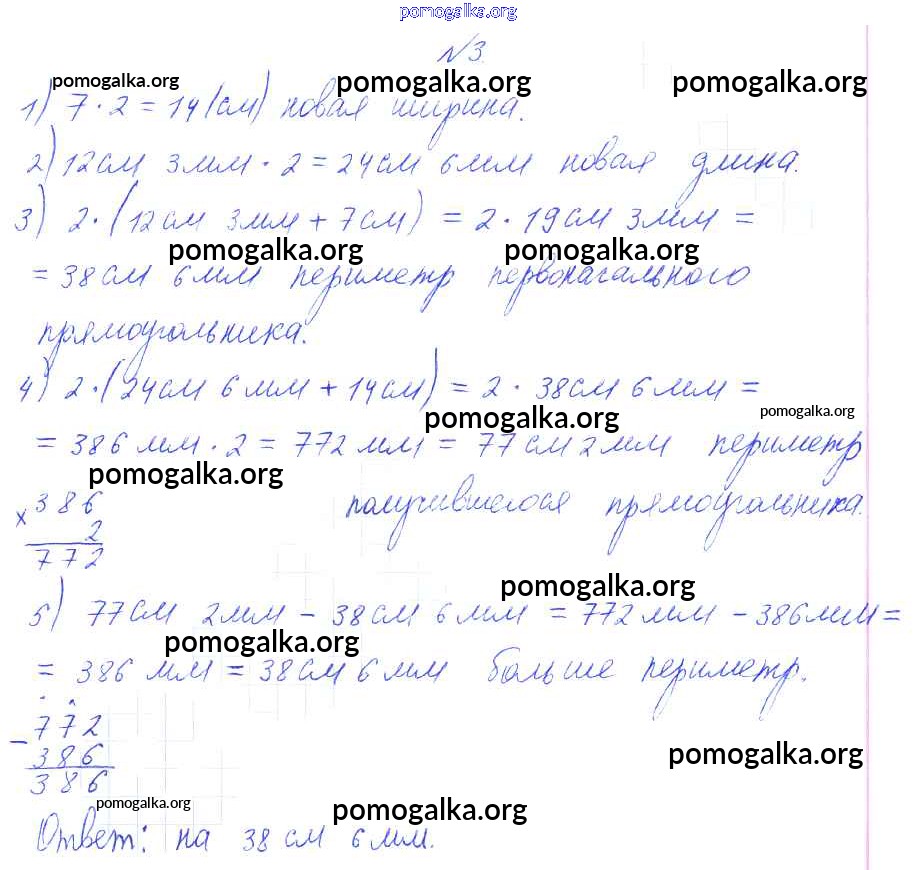 pomogalka.org
№3.
pomogalka.org pomogalka.org pomogalka.org
1) 7 · 2 = 14 (см) новая ширина.
2) 12 см 3 мм · 2 = 24 см 6 мм новая длина.
3) 2 · (12 см 3 мм + 7 см) = 2 · 19 см 3 мм =
pomogalka.org pomogalka.org
= 38 см 6 мм периметр первоначального
прямоугольника.
4) 2 · (24 см 6 мм + 14 см) = 2 · 38 см 6 мм =
pomogalka.org pomogalka.org
= 386 мм · 2 = 772 мм = 77 см 2 мм периметр
pomogalka.org
× 386 получившегося прямоугольника.
2
772
pomogalka.org
5) 77 см 2 мм - 38 см 6 мм = 772 мм - 386 мм =
pomogalka.org
= 386 мм = 38 см 6 мм больше периметр.
- 772
386
pomogalka.org
386
pomogalka.org pomogalka.org
Ответ: на 38 см 6 мм.